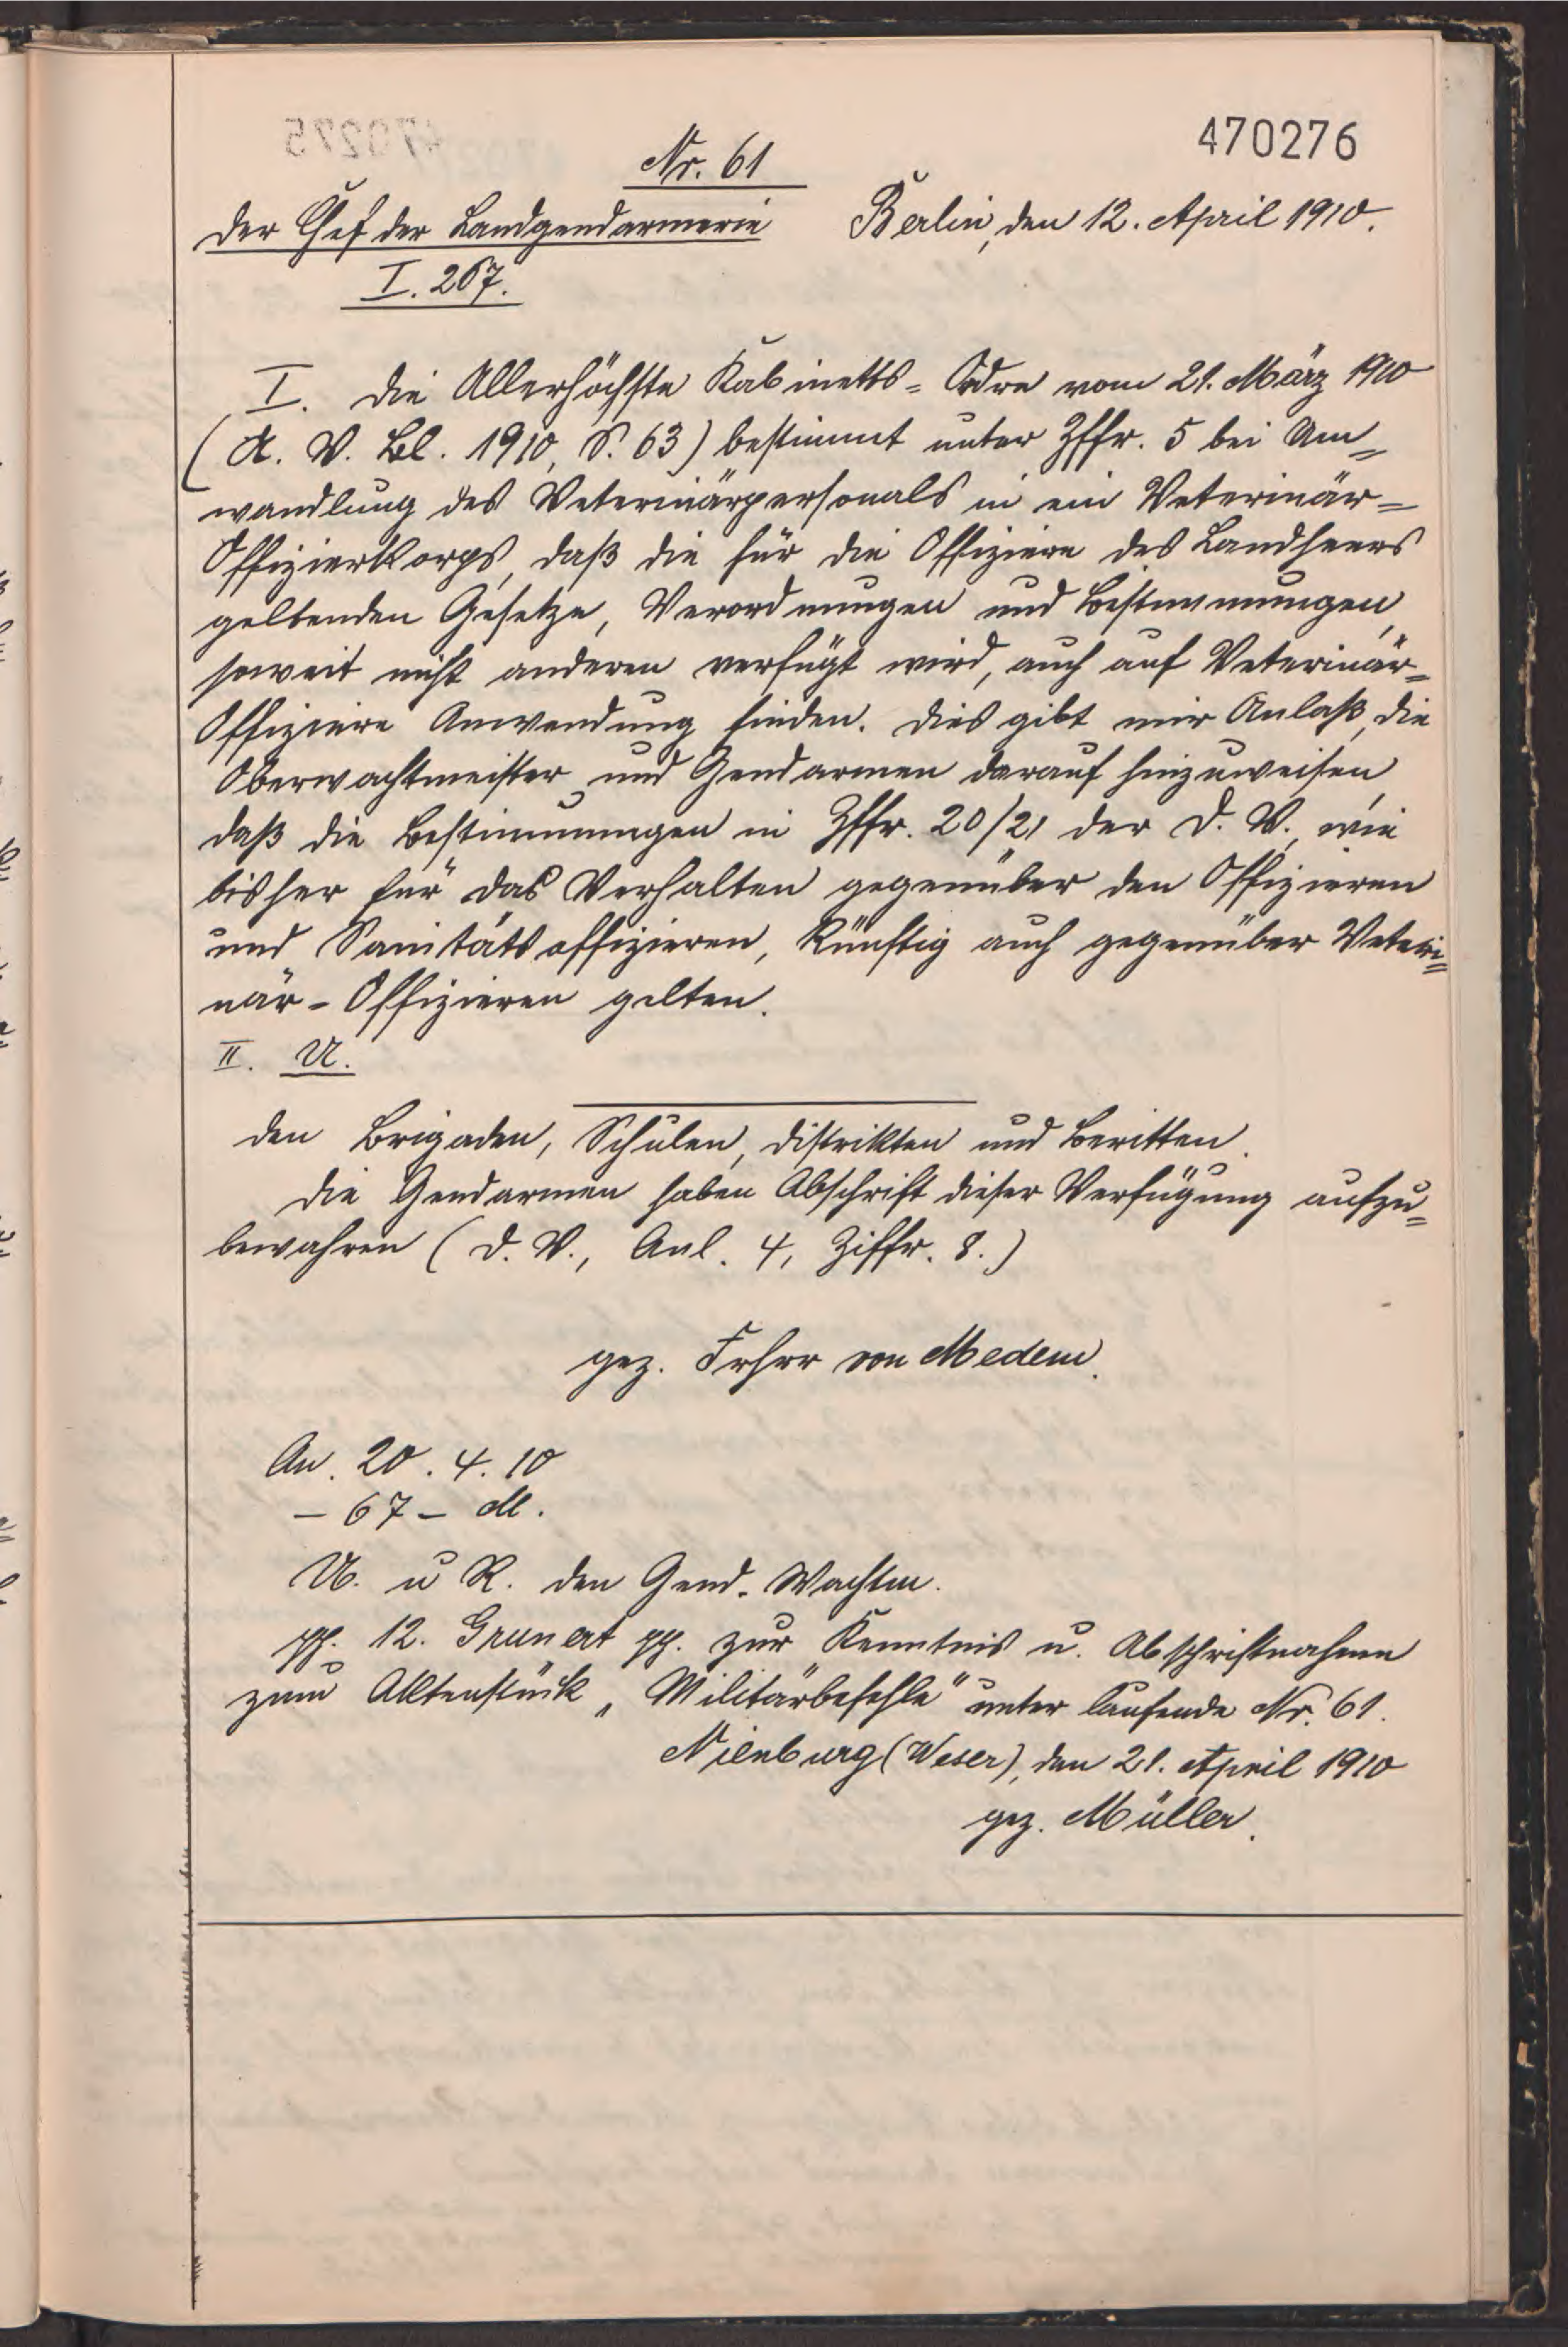 470276
Nr. 61
Der Chef der Landgendarmerie Berlin, den 12. April 1910.
I. 267.
I. Die Allerhöchste Kabinetts-Ordre vom 21. März 1910
(A. V. Bl. 1910, S. 63) bestimmt unter Zffr. 5 bei Um-
wandlung des Veterinärpersonals in ein Veterinär-
Offizierkorps, daß die für die Offiziere des Landheers
geltenden Gesetze, Verordnungen und Bestimmungen,
soweit nicht anderen verfügt wird, auch auf Veterinär-
Offiziere Anwendung finden. Dies gibt mir Anlaß, die
Oberwachtmeister und Gendarmen darauf hinzuweisen,
daß die Bestimmungen in Zffr. 20/21 der D. V., wie
bisher für das Verhalten gegenüber den Offizieren
und Sanitätsoffizieren, künftig auch gegenüber Veteri-
när-Offizieren gelten.
II. U.
den Brigaden, Schulen, Distrikten und Beritten.
Die Gendarmen haben Abschrift dieser Verfügung aufzu-
bewahren (D. V., Anl. 4, Ziffr. 8.)
gez. Frhrr von Medem.
An. 20. 4. 10
- 67 - M.
U. u R. den Gend. Wachtm.
pp. 12. Grunert pp. zur Kenntnis u. Abschriftnahme
zum Aktenstück „Militärbefehle" unter laufende Nr. 61.
Nienburg (Weser), den 21. April 1910
gez. Müller.